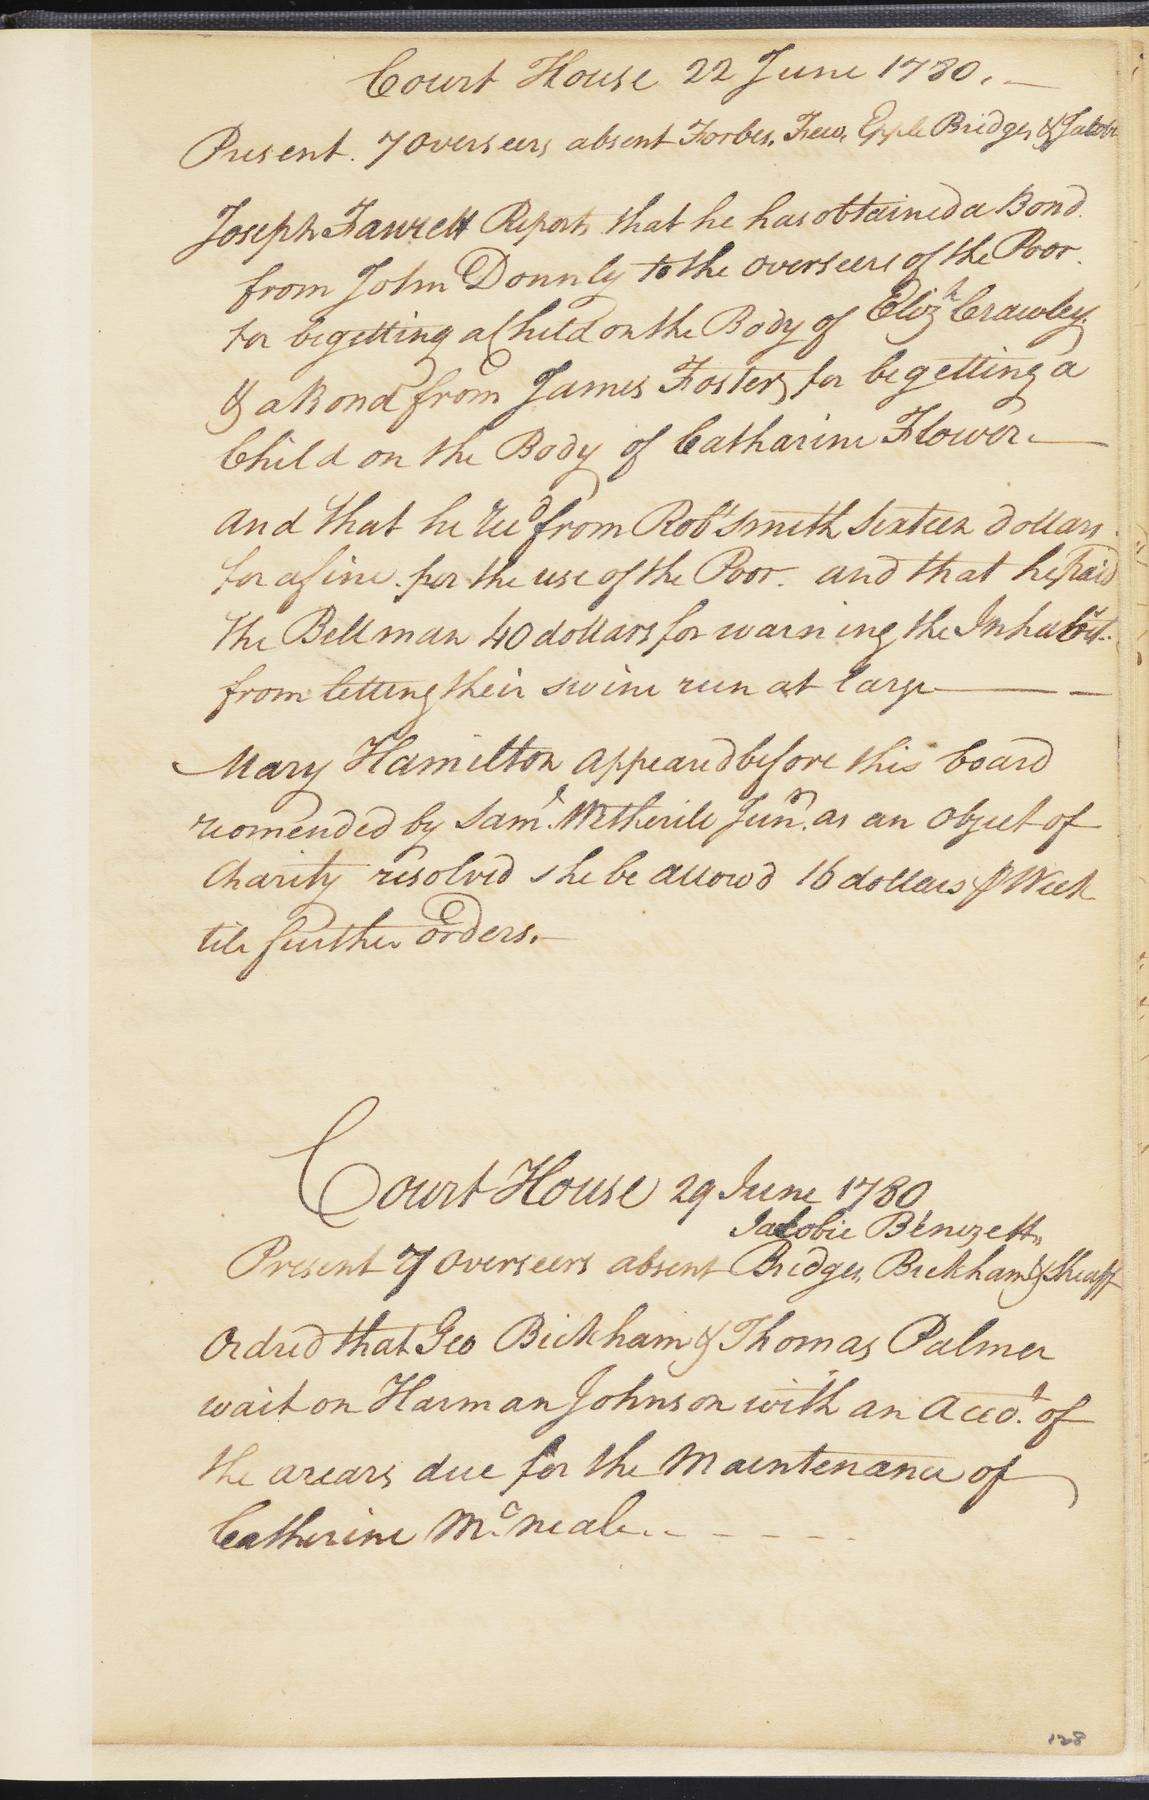 Court House 22 June 1780. —
Present. 7 Overseers absent Forbes, Few, Epple Bridges & Jacobi
Joseph Fawcett Reports that he has obtained a Bond
from John Donnly to the overseers of the Poor.
for begetting a Child on the Body of Eliz.h Crawley
& a Bond from James Foster, for begetting a
Child on the Body of Catharine Flower. —
and that he Rec.d from Rob.t Smith Sixteen dollars
for a fine. for the use of the Poor. and that he paid
the Bellman 40 dollars for warning the Inhabit.
from letting their swine run at large — —
Mary Hamilton appeared before this board
recomended by Sam.l Wetherile Jun.r as an Object of
Charity resolved she be allowd 16 dollars ⅌ Week
till further orders. —
Court House 29 June 1780
Jacobie Benezett,
Present 7 Overseers absent Bridges, Bickham & Sheaff
Ordred that Geo Bickham & Thomas Palmer
wait on Harman Johnson with an Acco.t of
the arears due for the Maintenance of
Catherine M.c neale. . - - - -
128